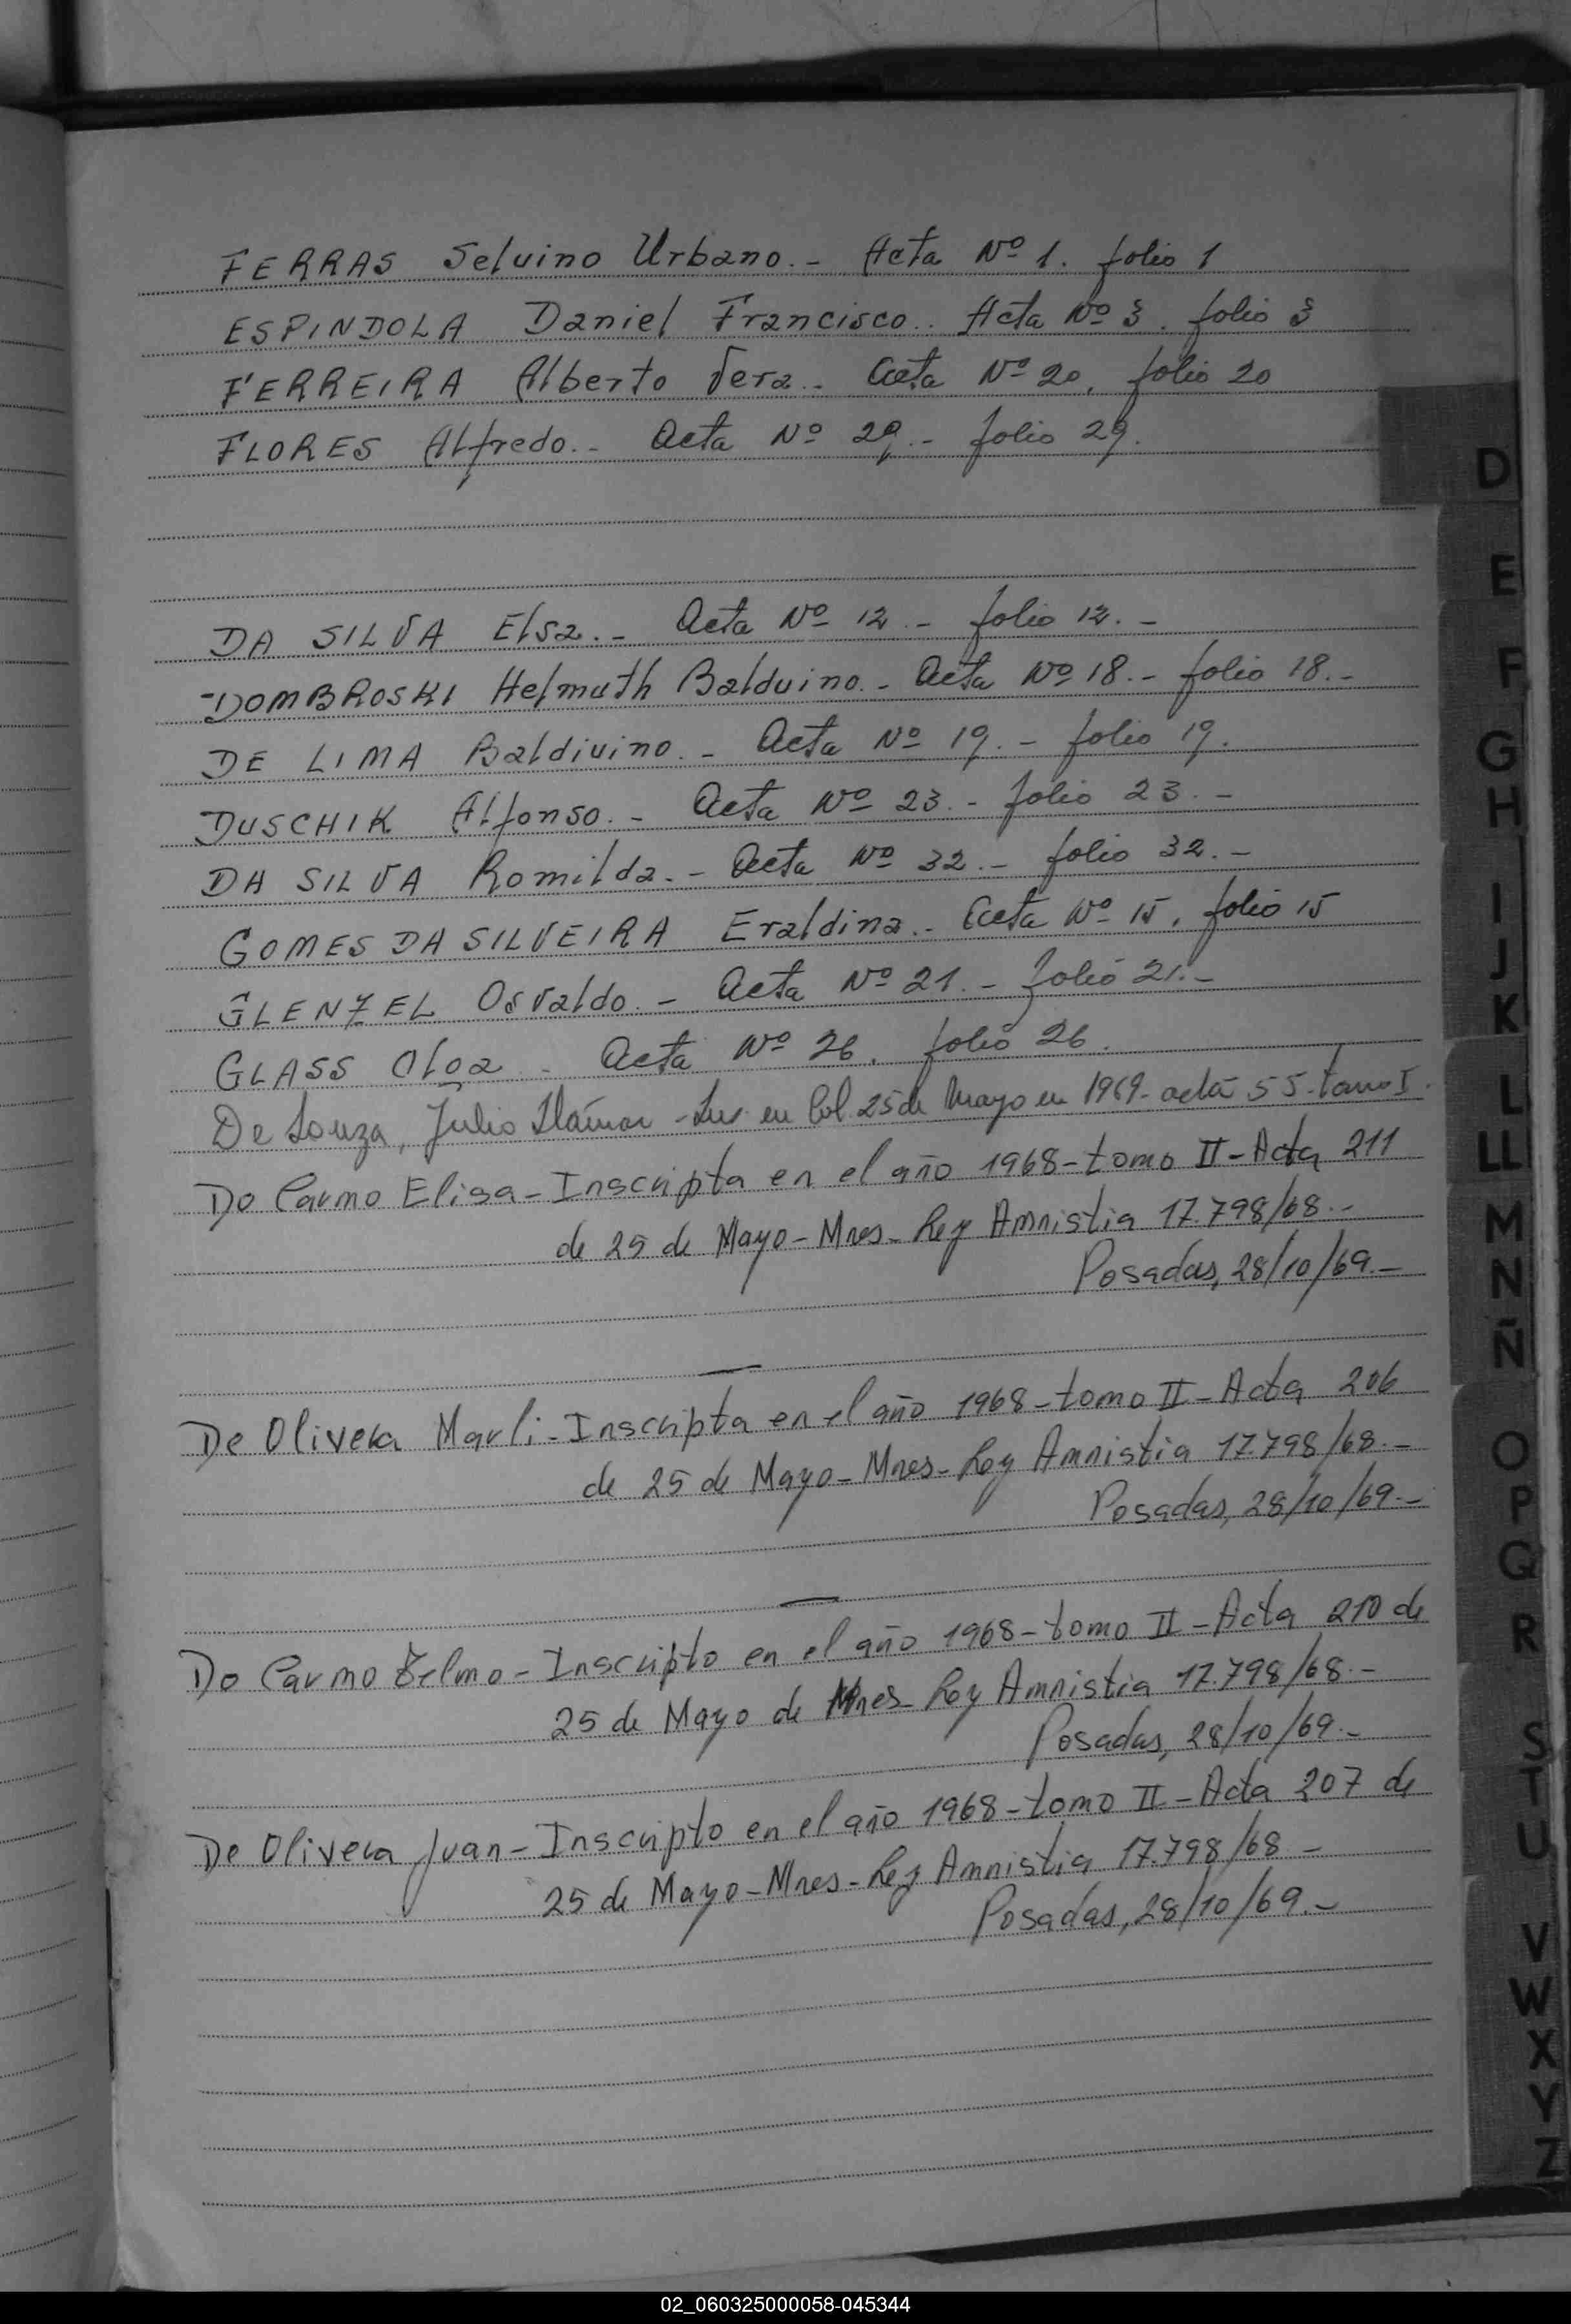 FERRAS Seluino Urbano.- Acta Nº 1. folio 1
ESPINDOLA Daniel Francisco.. Acta Nº 3. folio 3
FERREIRA Alberto Vera.. Acta Nº 20. folio 20
FLORES Alfredo.- Acta Nº 29.- folio 29.
DA SILVA Elsa.- Acta Nº 12.- folio 12.-
DOMBROSKI Helmuth Balduino.- Acta Nº 18.- folio 18.-
DE LIMA Baldiuino.- Acta Nº 19.- folio 19.
DUSCHIK Alfonso.- Acta Nº 23.- folio 23.-
DA SILVA Romilda.- Acta Nº 32.- folio 32.-
GOMES DA SILVEIRA Eraldina.- Acta Nº 15. folio 15
GLENZEL Osvaldo.- Acta Nº 21.- folio 21.-
GLASS Olga - Acta Nº 26. folio 26.
De Souza, Julio - en Col. 25 de Mayo en 1969- acta 55-tomo I.
Do Carmo Elisa-Inscripta en el año 1968-tomo II-Acta 211
de 25 de Mayo-Mnes-Ley Amnistia 17.798/68.-
Posadas, 28/10/69.-
De Olivera Marli-Inscripta en el año 1968-tomo II-Acta 206
de 25 de Mayo-Mnes-Ley Amnistia 17.798/68.-
Posadas, 28/10/69.-
Do Carmo Telmo-Inscripto en el año 1968-tomo II-Acta 210 de
25 de Mayo de Mnes-Ley Amnistia 17.798/68.-
Posadas, 28/10/69.-
De Olivera Juan-Inscripto en el año 1968-tomo II-Acta 207 de
25 de Mayo-Mnes-Ley Amnistia 17.798/68.-
Posadas, 28/10/69.-
D
E
F
G
H
I
J
K
L
LL
M
N
Ñ
O
P
Q
R
S
T
U
V
W
X
Y
Z
02_060325000058-045344